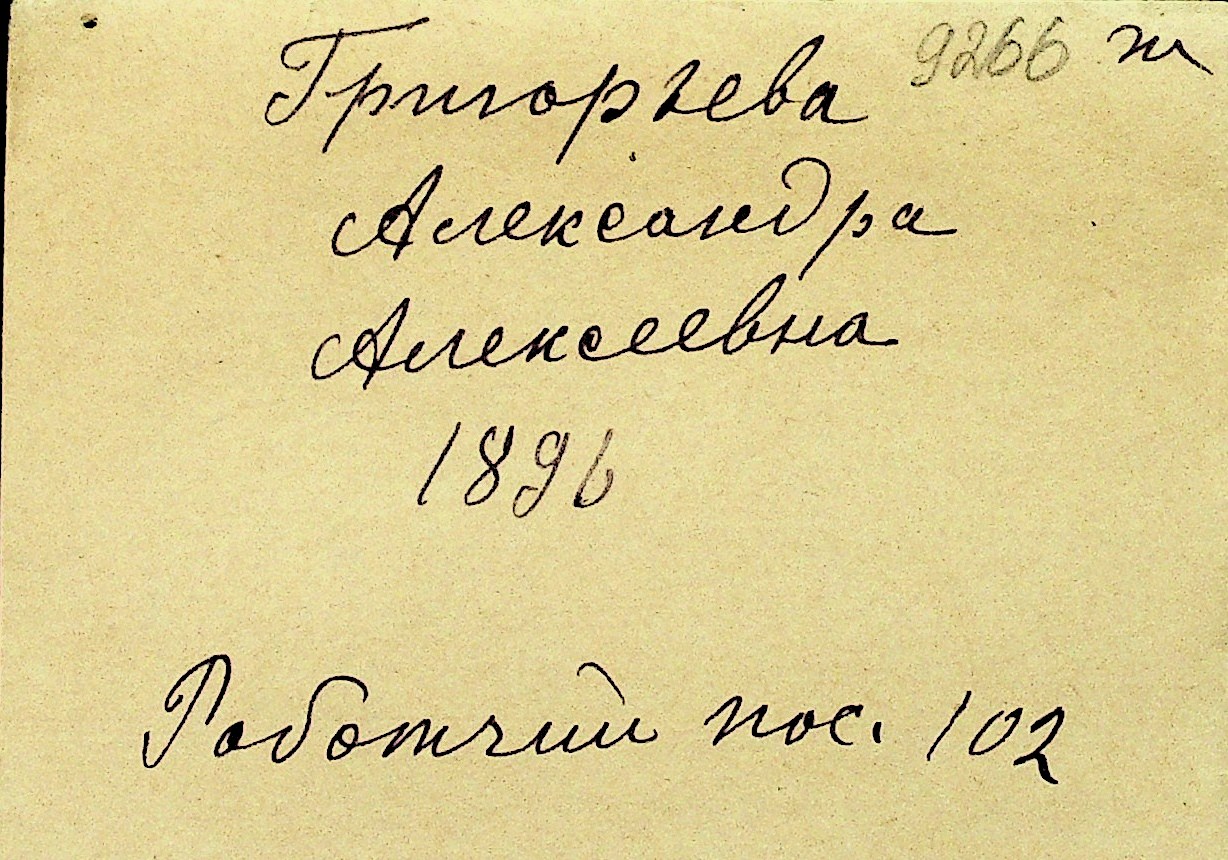 9266 ж
Григорьева
Александра
Алексеевна
1896
Работчий пос. 102